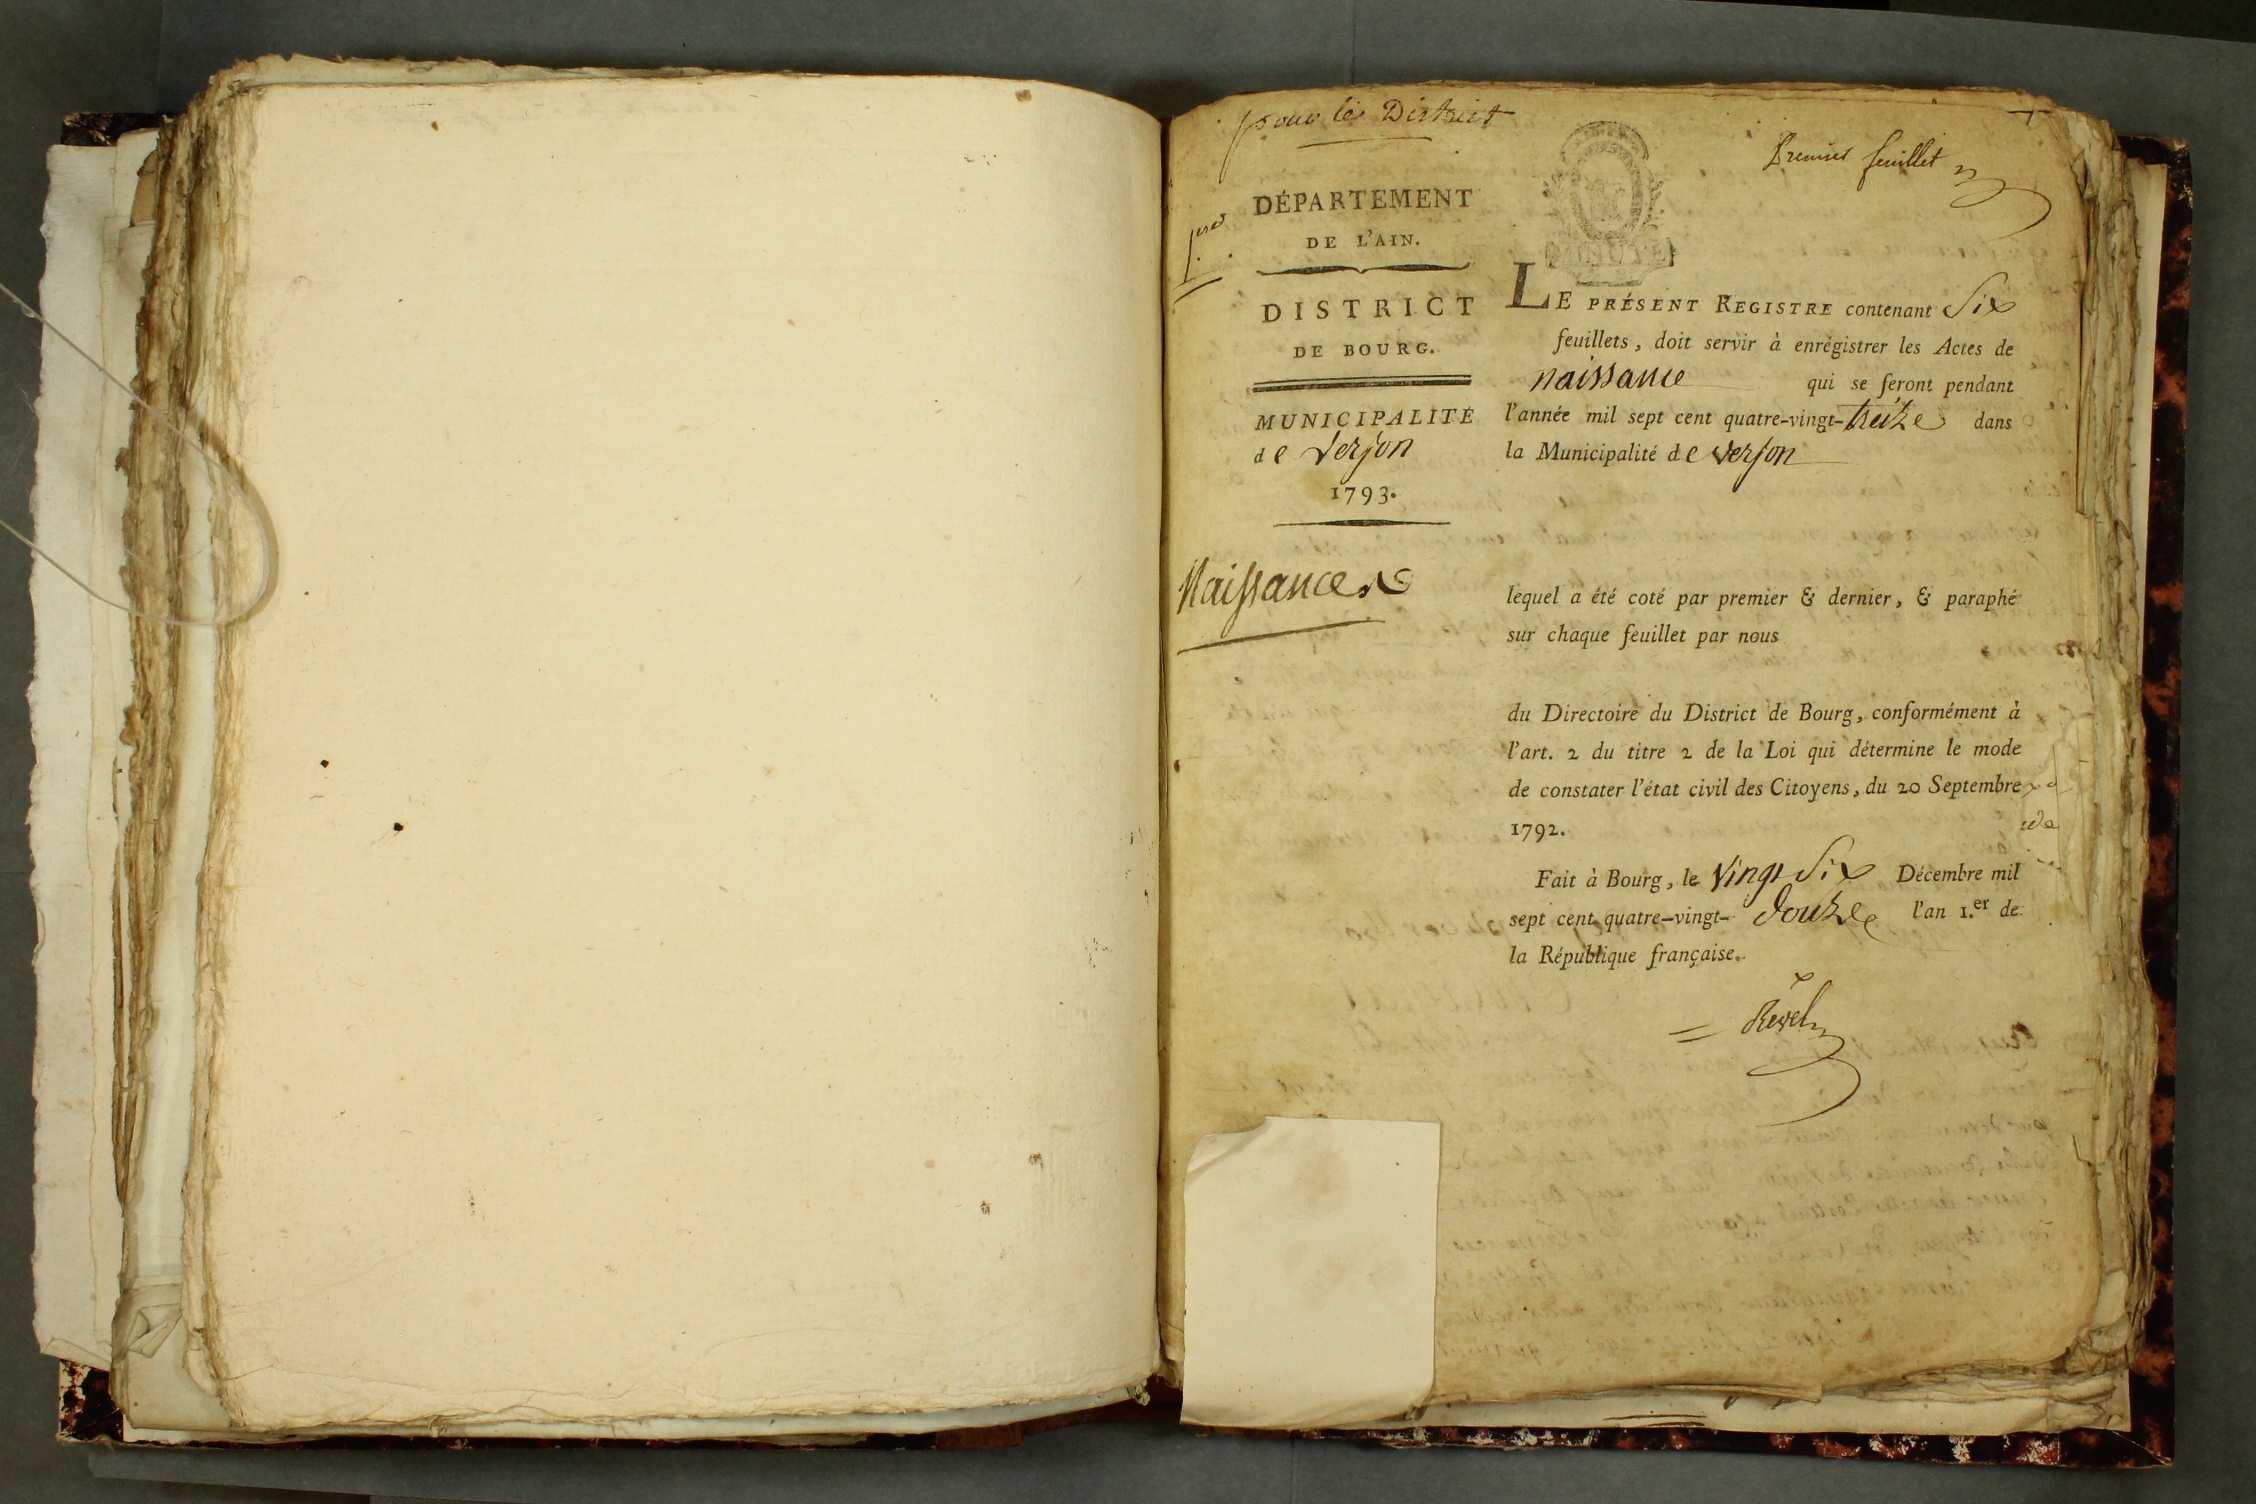 pour le District
Premier feuillet
1er
DÉPARTEMENT
DE L'AIN.
DISTRICT
DE BOURG.
MUNICIPALITÉ
de Verjon
1793.
Naissances
LE PRÉSENT REGISTRE contenant Six
feuillets, doit servir à enrégistrer les Actes de
naissance qui se feront pendant
l'année mil sept cent quatre-vingt-treize dans
la Municipalité de Verjon
lequel a été coté par premier & dernier, & paraphé
sur chaque feuillet par nous
du Directoire du District de Bourg, conformément à
l'art. 2 du titre 2 de la Loi qui détermine le mode
de constater l'état civil des Citoyens, du 20 Septembre
1792.
Fait à Bourg, le Vingt Six Décembre mil
sept cent quatre-vingt-douze l'an 1.er de
la République française.
Revel